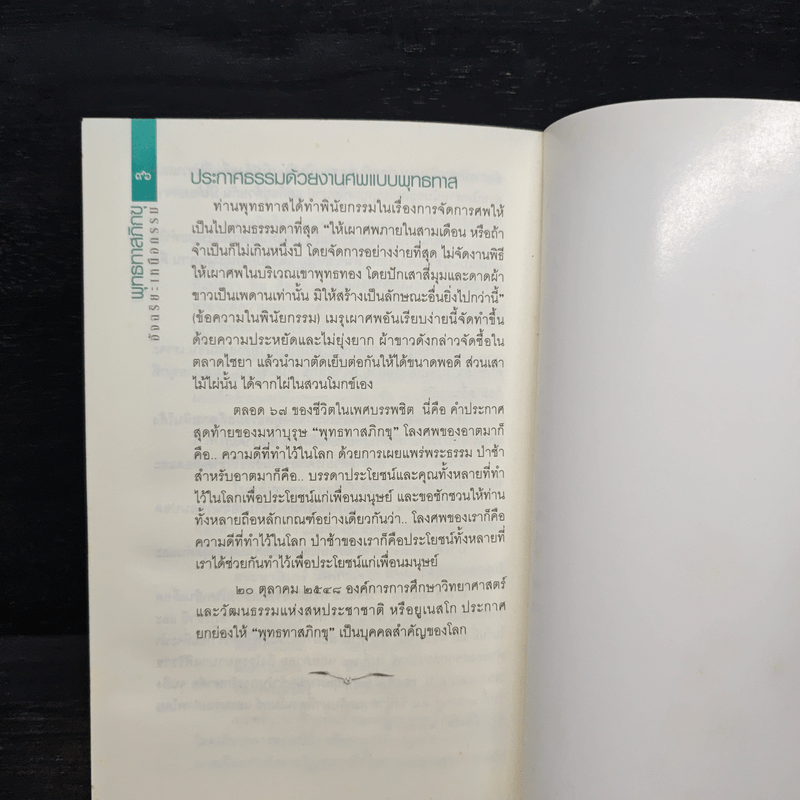 ๖
พุทธทาสภิกขุ
อัจฉริยะเหนือกรรม
ประกาศธรรมด้วยงานศพแบบพุทธทาส
ท่านพุทธทาสได้ทำพินัยกรรมในเรื่องการจัดการศพให้
เป็นไปตามธรรมดาที่สุด “ให้เผาศพภายในสามเดือน หรือถ้า
จำเป็นก็ไม่เกินหนึ่งปี โดยจัดการอย่างง่ายที่สุด ไม่จัดงานพิธี
ให้เผาศพในบริเวณเขาพุทธทอง โดยปักเสาสี่มุมและดาดผ้า
ขาวเป็นเพดานเท่านั้น มิให้สร้างเป็นลักษณะอื่นยิ่งไปกว่านี้”
(ข้อความในพินัยกรรม) เมรุเผาศพอันเรียบง่ายนี้จัดทำขึ้น
ด้วยความประหยัดและไม่ยุ่งยาก ผ้าขาวดังกล่าวจัดซื้อใน
ตลาดไชยา แล้วนำมาตัดเย็บต่อกันให้ได้ขนาดพอดี ส่วนเสา
ไม้ไผ่นั้น ได้จากไผ่ในสวนโมกข์เอง
ตลอด ๖๗ ของชีวิตในเพศบรรพชิต นี่คือ คำประกาศ
สุดท้ายของมหาบุรุษ “พุทธทาสภิกขุ” โลงศพของอาตมาก็
คือ.. ความดีที่ทำไว้ในโลก ด้วยการเผยแพร่พระธรรม ป่าช้า
สำหรับอาตมาก็คือ.. บรรดาประโยชน์และคุณทั้งหลายที่ทำ
ไว้ในโลกเพื่อประโยชน์แก่เพื่อนมนุษย์ และขอชักชวนให้ท่าน
ทั้งหลายถือหลักเกณฑ์อย่างเดียวกันว่า.. โลงศพของเราก็คือ
ความดีที่ทำไว้ในโลก ป่าช้าของเราก็คือประโยชน์ทั้งหลายที่
เราได้ช่วยกันทำไว้เพื่อประโยชน์แก่เพื่อนมนุษย์
๒๐ ตุลาคม ๒๕๔๘ องค์การการศึกษาวิทยาศาสตร์
และวัฒนธรรมแห่งสหประชาชาติ หรือยูเนสโก ประกาศ
ยกย่องให้ “พุทธทาสภิกขุ” เป็นบุคคลสำคัญของโลก